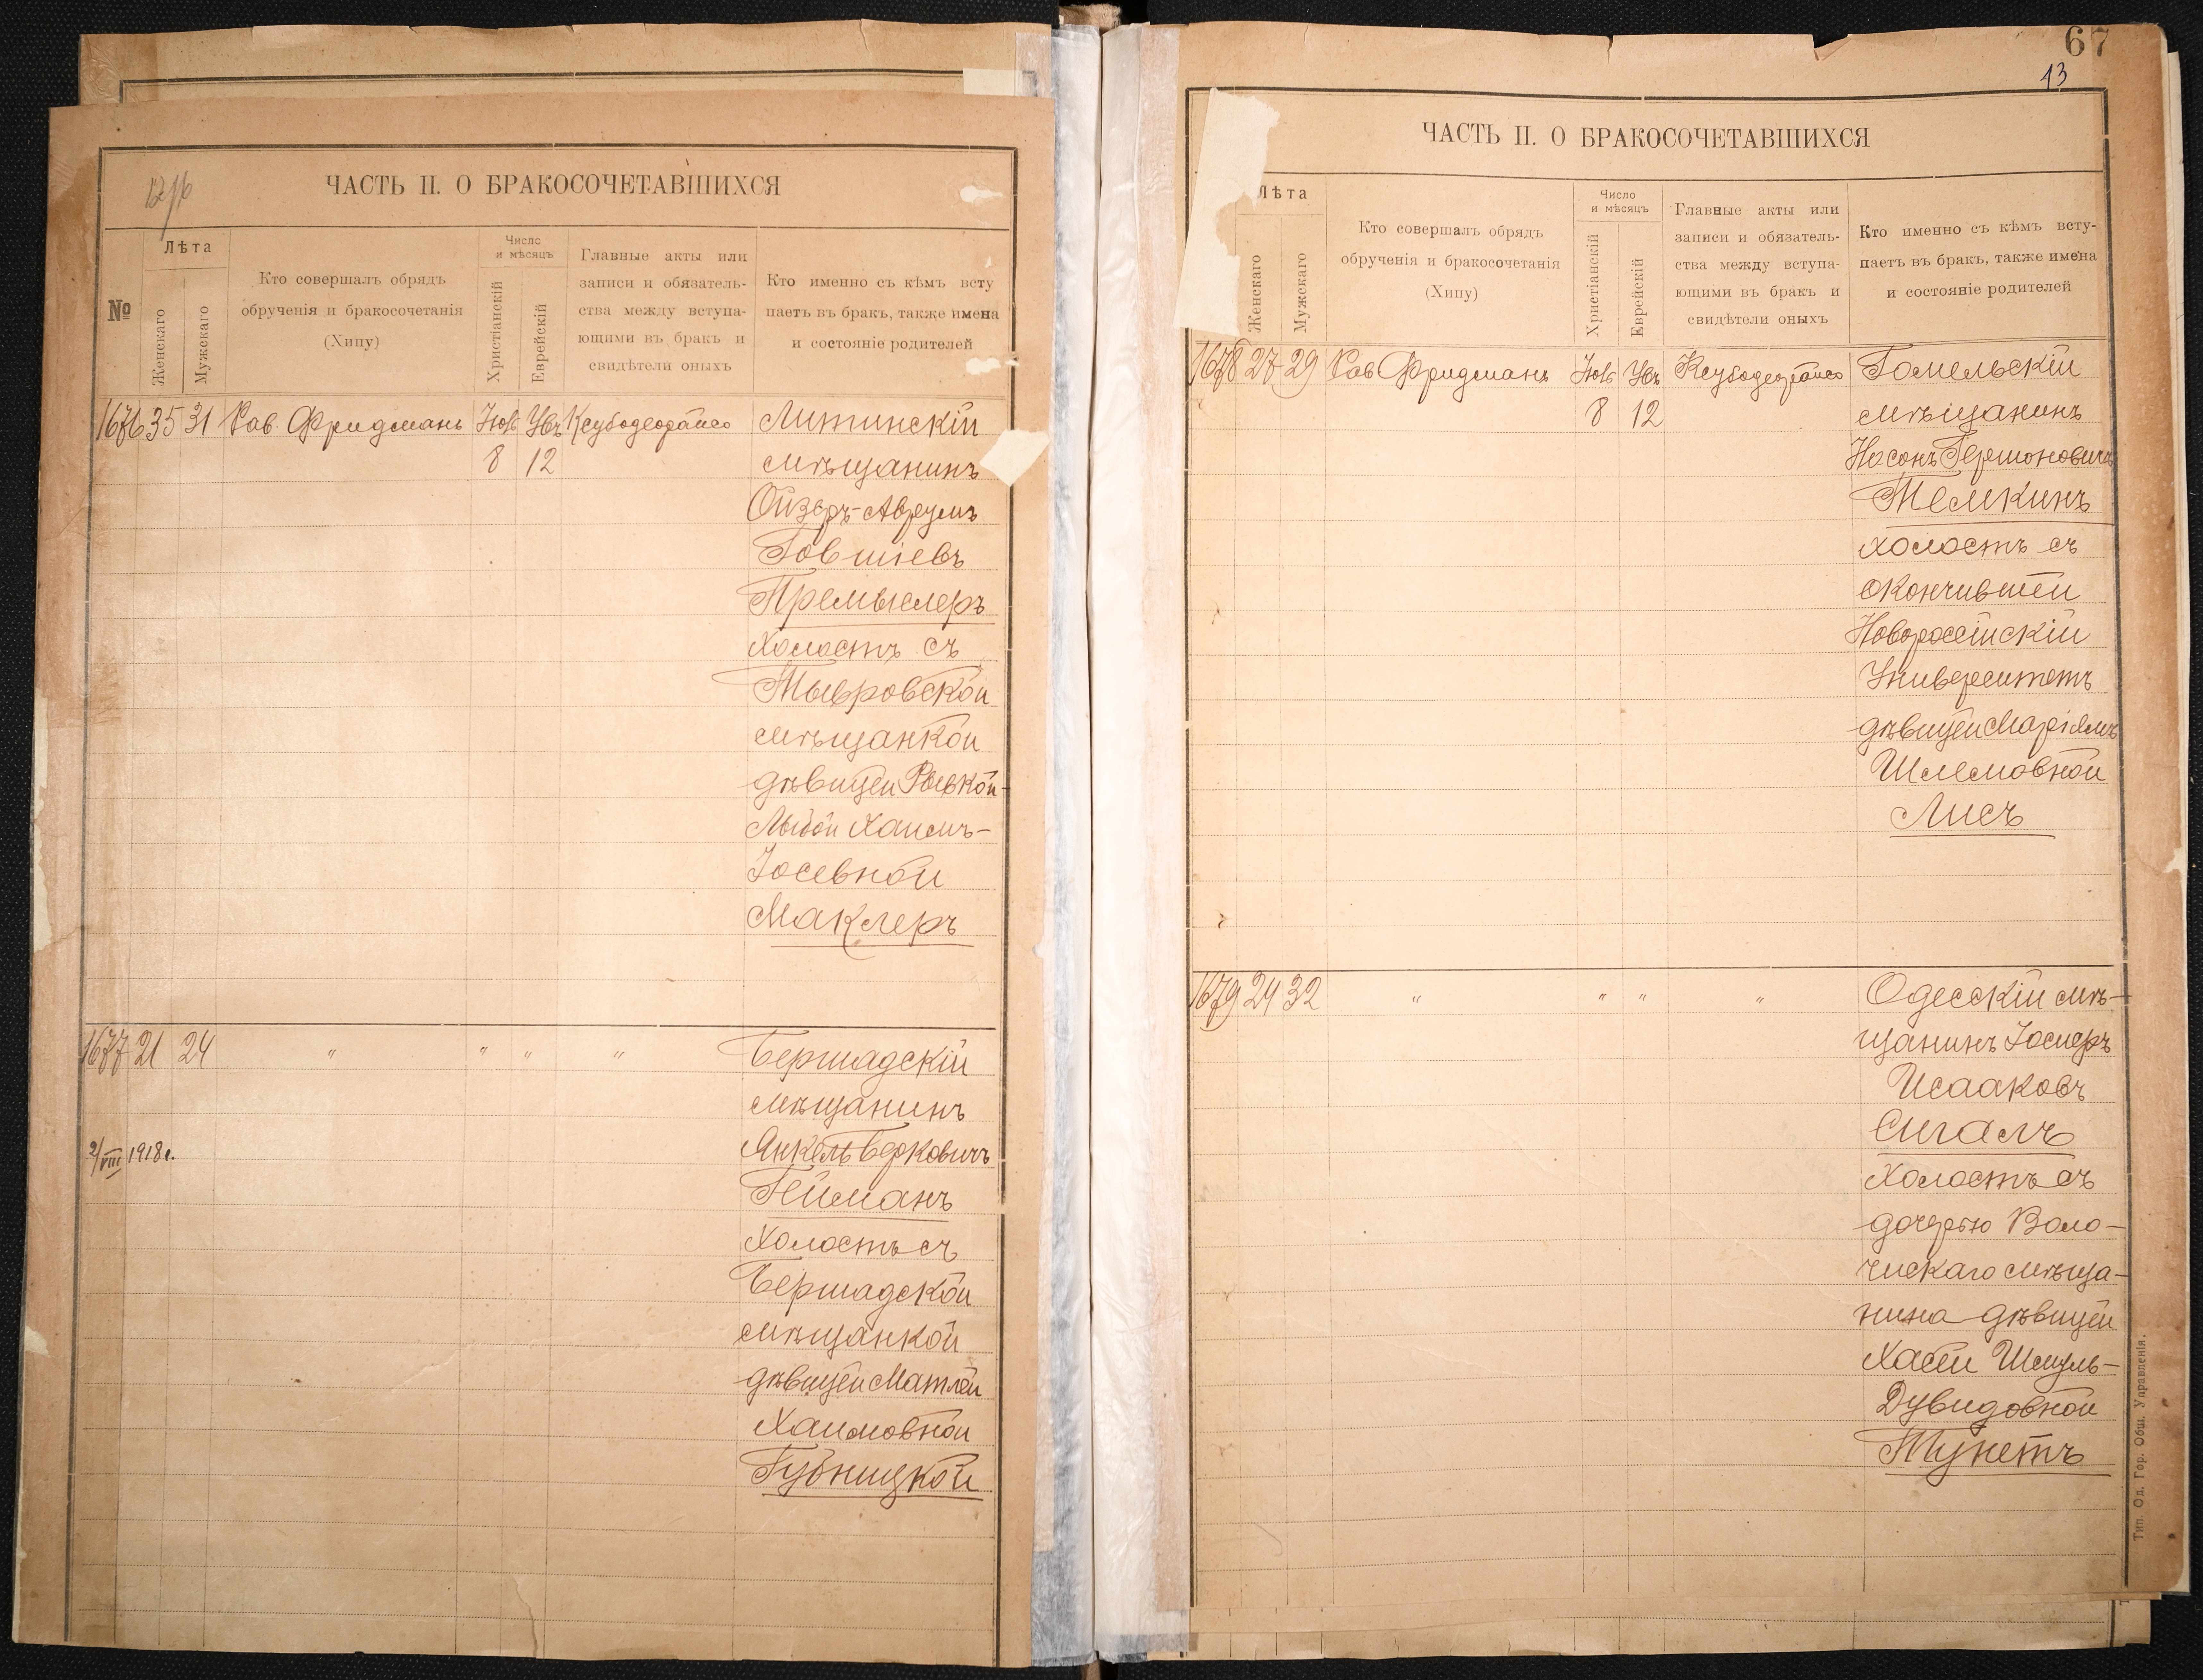 67
13
12/16
ЧАСТЬ II. О БРАКОСОЧЕТАВШИХСЯ
№
Лѣта
Женскаго
Мужскаго
Кто совершалъ обрядъ
обрученія и бракосочетанія
(Хипу)
Число
и мѣсяцъ
Христіанскій
Еврейскій
Главные акты или
записи и обязатель-
ства между вступа-
ющими въ бракъ и
свидѣтели оныхъ
Кто именно съ кѣмъ всту
паетъ въ бракъ, также имена
и состояніе родителей
1676 35 31 Рав. Фридманъ Ноя Хев Ксубодеорайсо Литинскій
8 12 мѣщанинъ
Ойзеръ-Аврумъ
Говшіевъ
Премыслеръ
холостъ съ
Тывровской
мѣщанкой
дѣвицей Рывкой-
Лыбой Хаимъ-
Іосевной
Маклеръ
1677 21 24 " " " " Бершадскій
мѣщанинъ
2/VIII 1918 г. Янкель Берковичъ
Гейманъ
Холостъ съ
Бершадской
мѣщанкой
дѣвицей Матлей
Хаимовной
Губницкой
ЧАСТЬ II. О БРАКОСОЧЕТАВШИХСЯ
Лѣта
Женскаго
Мужскаго
Кто совершалъ обрядъ
обрученія и бракосочетанія
(Хипу)
Число
и мѣсяцъ
Христіанскій
Еврейскій
Главные акты или
записи и обязатель-
ства между вступа-
ющими въ бракъ и
свидѣтели оныхъ
Кто именно съ кѣмъ всту-
паетъ въ бракъ, также имена
и состояніе родителей
1678 27 29 Рав Фридманъ Ксубодеорайсо Гомельскій
8 12 мѣщанинъ
Носонъ Гершоновичъ
Темкинъ
холостъ съ
окончившей
Новороссійскій
Университетъ
дѣвицей Маріямъ
Шлемовной
Лисъ
1679 24 32 " " " " Одесскій мѣ-
щанинъ Іосифъ
Исааковъ
Сигалъ
Холостъ съ
дочерью Воло-
чискаго мѣща-
нина дѣвицей
Хаей Шмуль-
Дувидовной
Тунетъ
Тип. Од. Гор. Общ. Управленія.